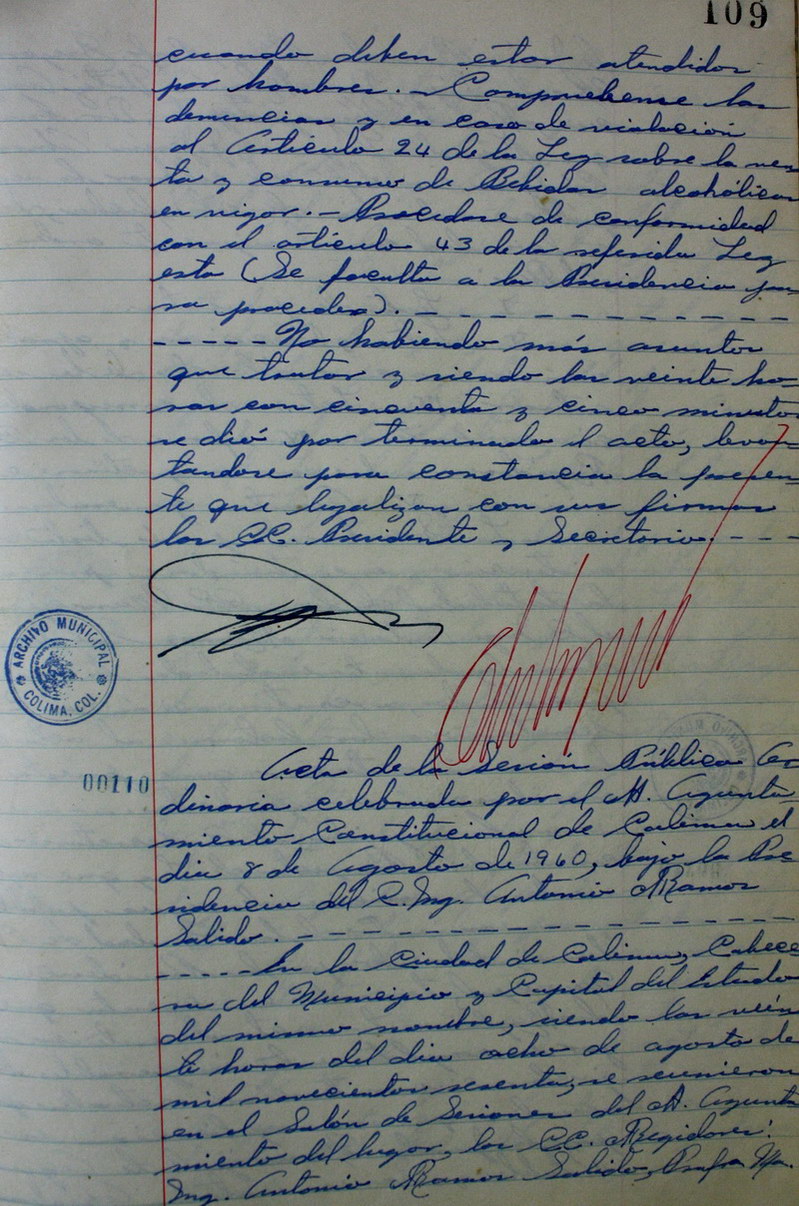 109
cuando deben estar atendidos
por hombres. - Compruebense las
denuncias y en caso de violación
al Artículo 24 de la Ley sobre la ven
ta y consumo de Bebidas alcohólicas
en vigor. - Procedase de conformidad
con el artículo 43 de la referida Ley
esta (Se faculta a la Presidencia pa-
ra proceder). - - - - - - - - - - - -
- - - - - No habiendo más asuntos
que tratar y siendo las veinte ho-
ras con cincuenta y cinco minutos
se dió por terminado el acto, levan-
tandose para constancia la presen-
te que legalizan con sus firmas
los CC. Presidente y Secretario. - - -
ARCHIVO MUNICIPAL
COLIMA, COL.
00110
Acta de la Sesion Pública Or
dinaria celebrada por el H. Ayunta-
miento Constitucional de Colima el
dia 8 de Agosto de 1960, bajo la Pre
sidencia del C. Ing. Antonio Ramos
Salido. - - - - - - - - - - - - - - - -
- - - - - En la Ciudad de Colima, Cabece
ra del Municipio y Capital del Estado
del mismo nombre, siendo las vein
te horas del dia ocho de agosto de
mil novecientos sesenta, se reunieron
en el Salón de Sesiones del H. Ayunta
miento del lugar, los CC. Regidores:
Ing. Antonio Ramos Salido, Profra Ma.